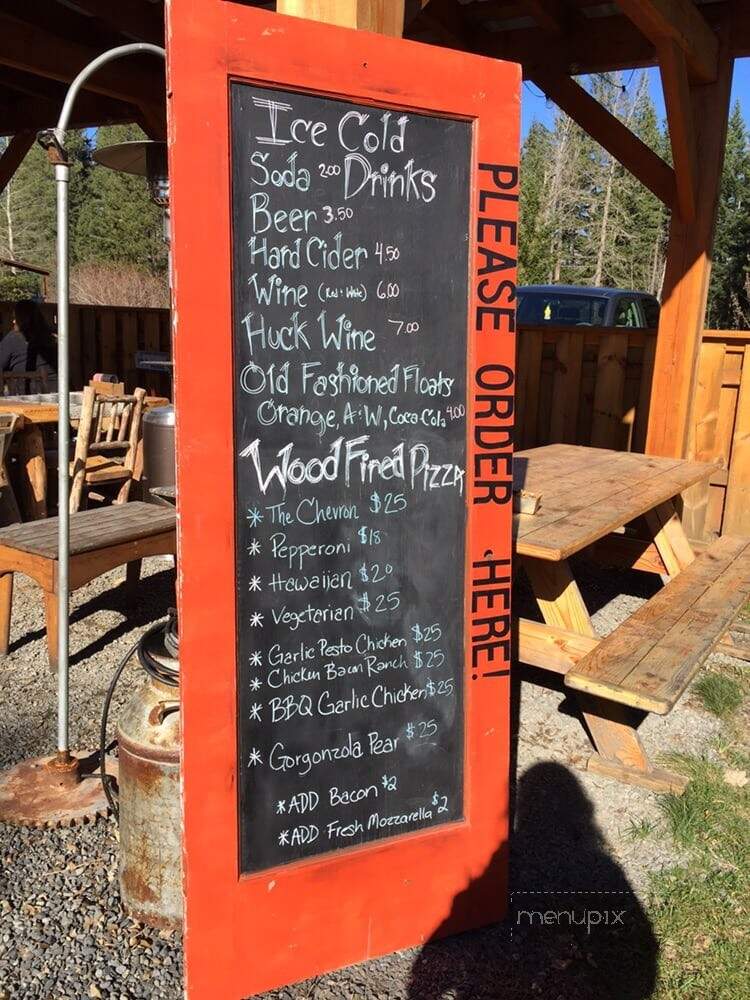 Ice Cold
Drinks
Soda 2.00
Beer 3.50
Hard Cider 4.50
Wine (Red & White) 6.00
Huck Wine 7.00
Old Fashioned Floats
Orange, A&W, Coca-Cola 4.00
Wood Fired Pizza
* The Chevron $25
* Pepperoni $18
* Hawaiian $20
* Vegetarian $25
* Garlic Pesto Chicken $25
* Chicken Bacon Ranch $25
* BBQ Garlic Chicken $25
* Gorgonzola Pear $25
* ADD Bacon $2
* ADD Fresh Mozzarella $2
PLEASE ORDER HERE!
menupix